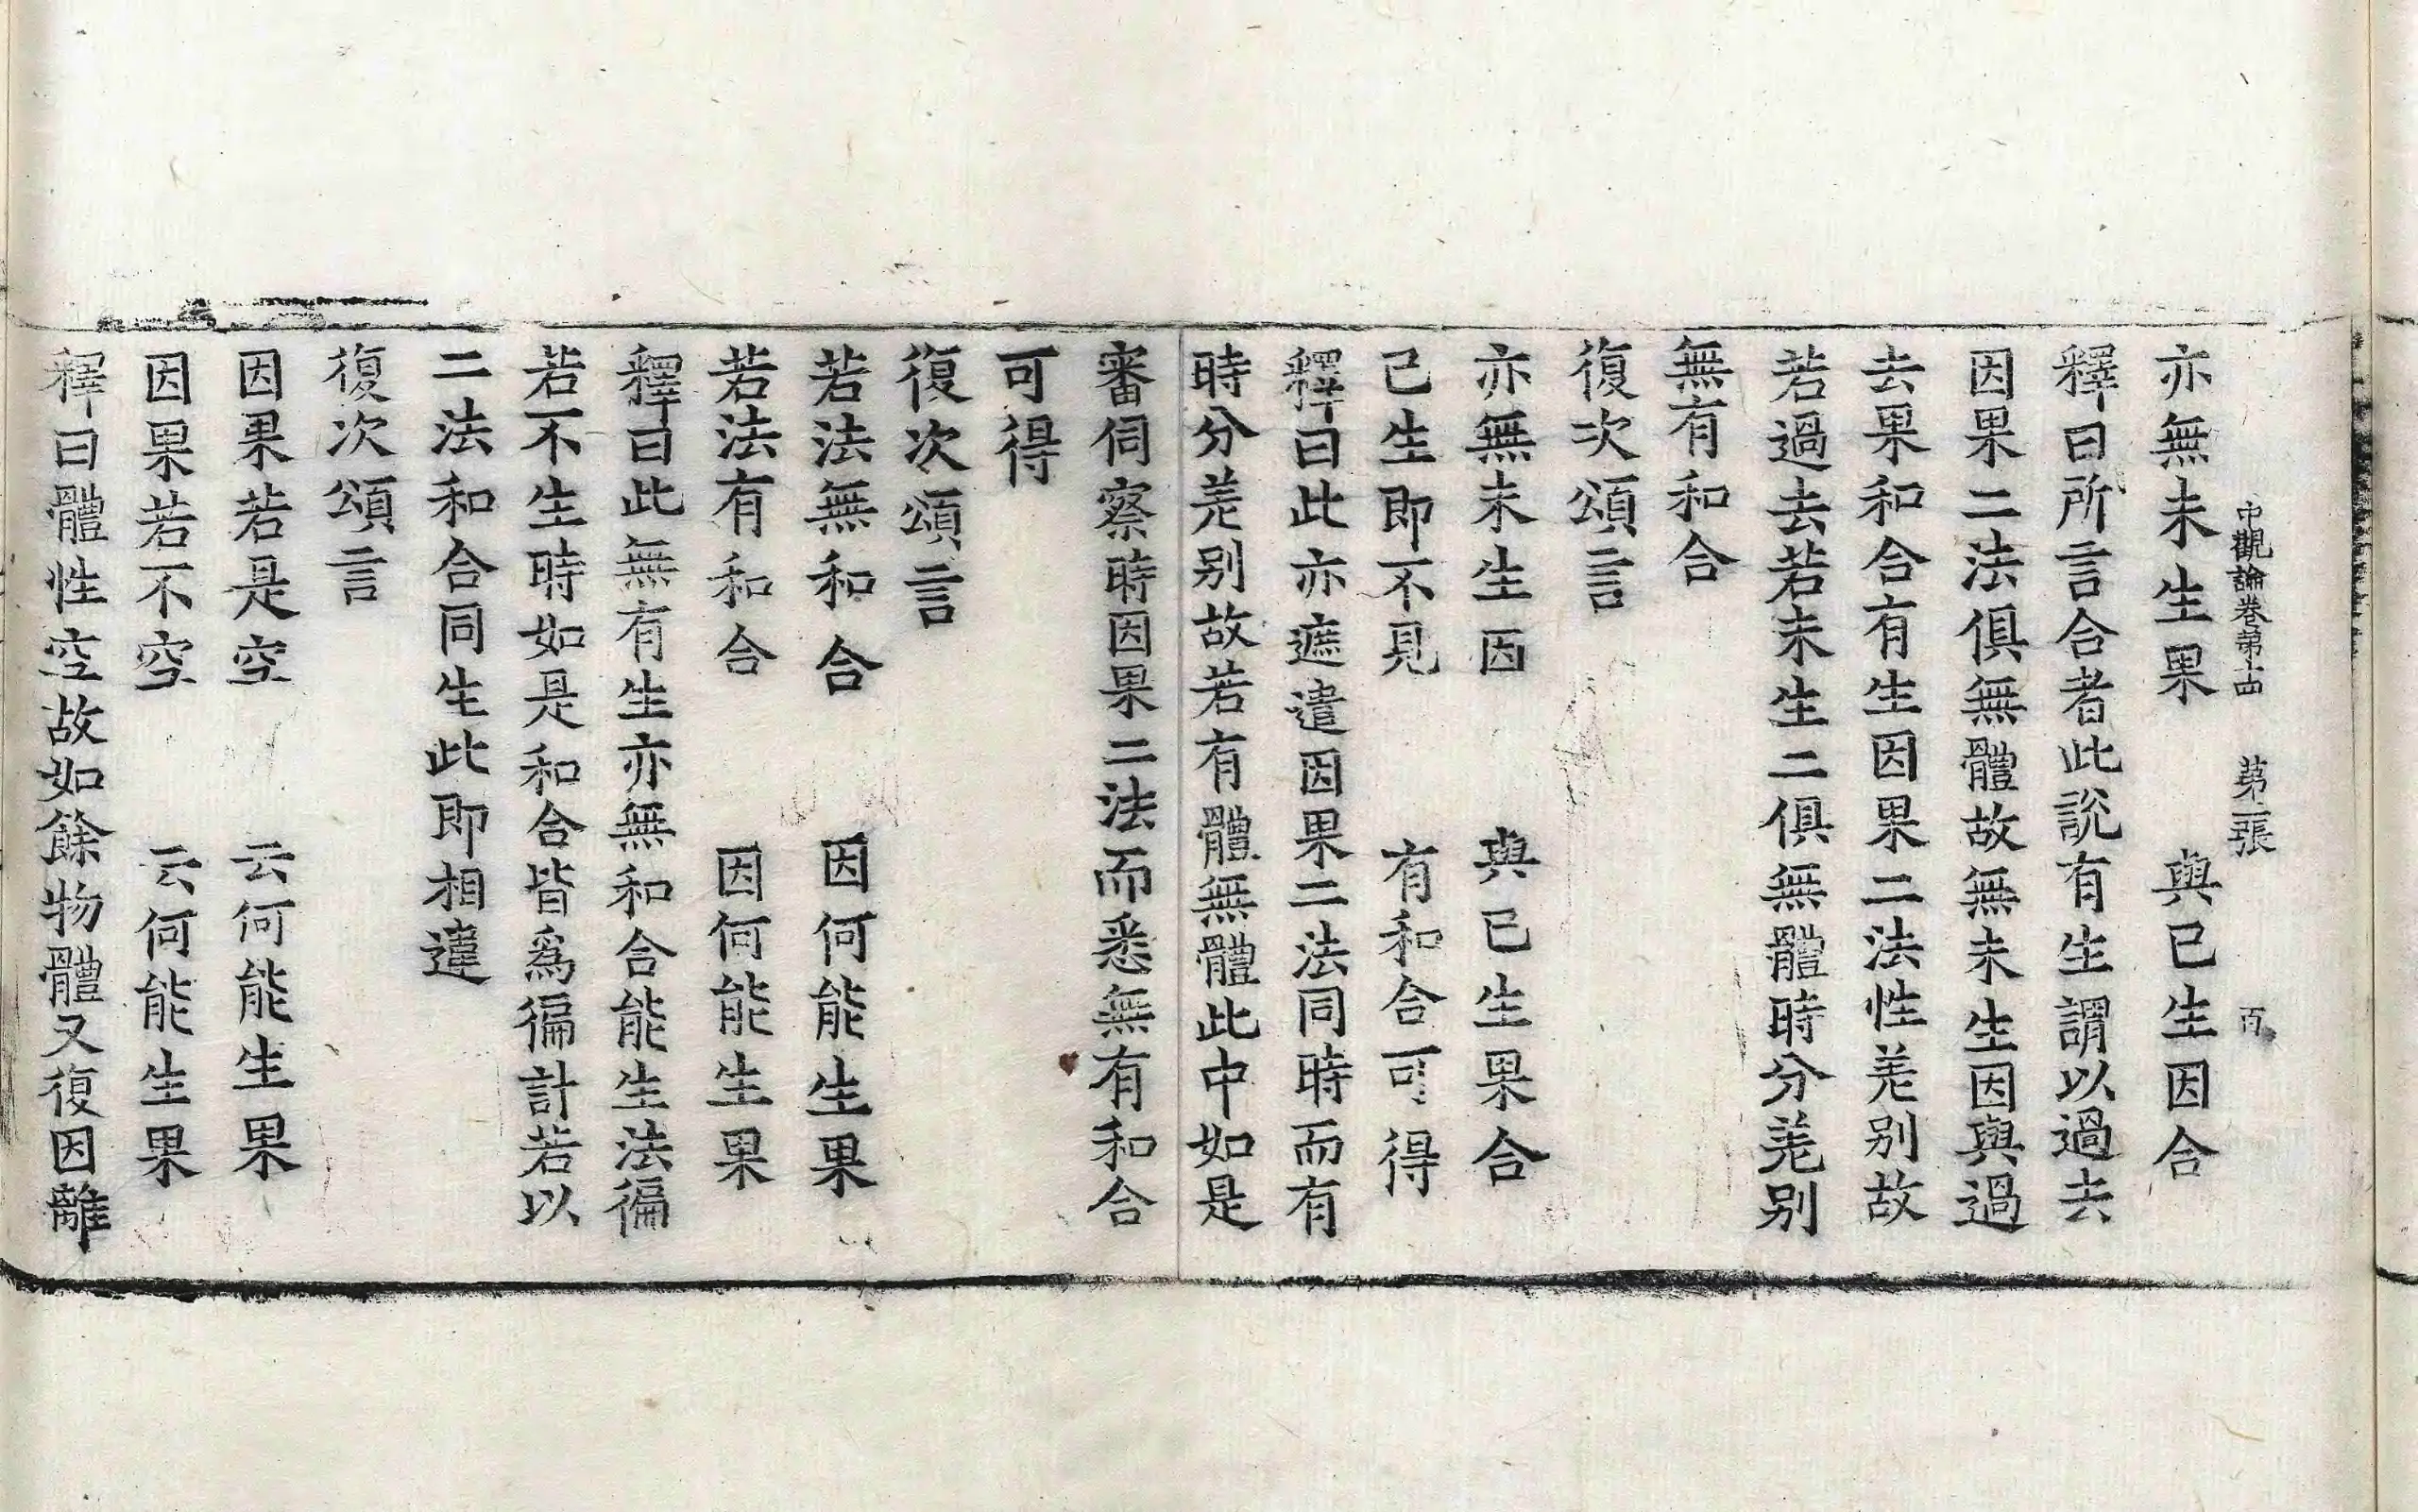 中觀論卷第十四　第二張　百
亦無未生果　與已生因合
釋曰所言合者此說有生謂以過去
因果二法俱無體故無未生因與過
去果和合有生因果二法性差别故
若過去若未生二俱無體時分差别
無有和合
復次頌言
亦無未生因　與已生果合
已生即不見　有和合可得
釋曰此亦遮遣因果二法同時而有
時分差别故若有體無體此中如是
審伺察時因果二法而悉無有和合
可得
復次頌言
若法無和合　因何能生果
若法有和合　因何能生果
釋曰此無有生亦無和合能生法徧
若不生時如是和合皆爲徧計若以
二法和合同生此即相違
復次頌言
因果若是空　云何能生果
因果若不空　云何能生果
釋曰體性空故如餘物體又復因離